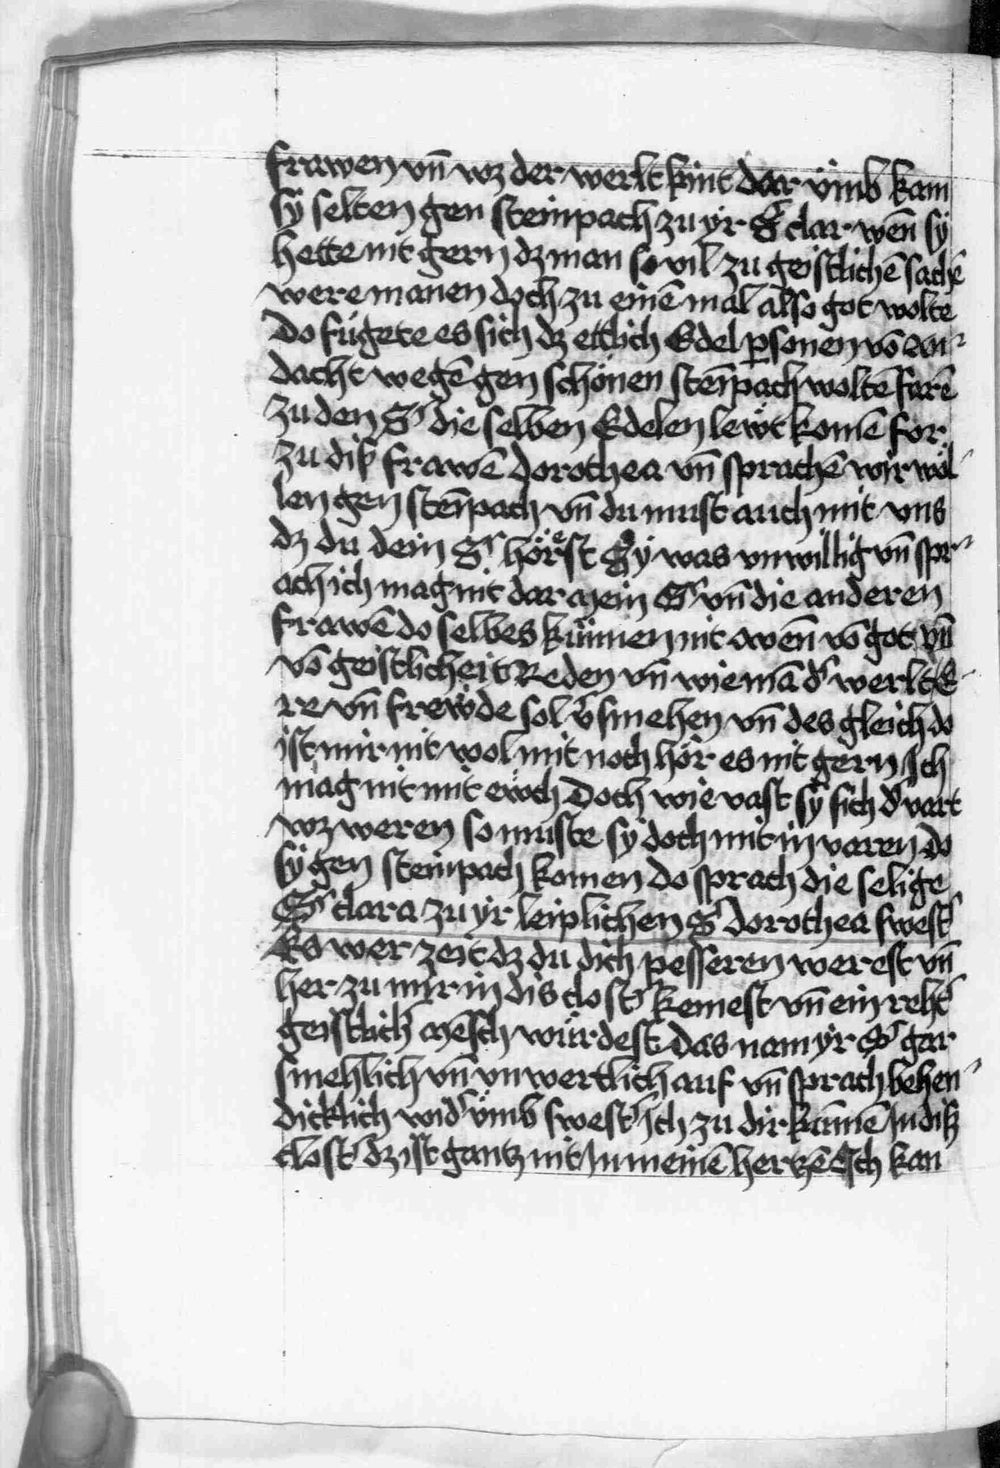 frawen vñ wz der werlt kint dar vmb kam
sÿ selten gen steinpach zu yr Sʳ clar wēn sÿ
hette nit gern dz man so vil zu geistlichē sachē
were manen doch zu einē mal also got wolte
Do fúgete es sich dz ettlich Edel ꝑsonen vō an-
dacht wegē gen schönen stēpach woltē farē
zu den Sʳ die selben Edelen lewt komē for
zu diß frawē dorothea vñ sprachē wir wöl-
len gen stēpach vñ du must auch mit vns
dz du dein Sʳ hörest Sÿ was vnwillig vñ spr-
ach ich mag nit dar mein Sʳ vñ die anderen
frawē do selbes künnen nit wēn vō got vñ
vō geistlicheit Reden vñ wie mā dʳ werlt E-
re vñ frewde sol v̄smehen vñ des gleich do
ist mir nit wol mit noch hör es nit gern Ich
mag nit mit ewch Doch wie vast sÿ sich dʳ vart
wz weren so muste sÿ doch mit in varen Do
sÿ gen steinpach komen do sprach die selige
Sʳ clara zu yr leiplichen Sʳ dorothea swestʳ
Es wer zeit dz du dich pesseren werest vñ
her zu mir in dis clostʳ kemest vñ ein reht
geistlich mēsch würdest Das nam yr Sʳ gar
smehlich vñ vnwertlich auf vñ sprach behen-
dicklich widʳ vmb swestʳ Ich zu dir kumē In diß
clostʳ dz ist gantz nit In meinē hertzē Ich kan